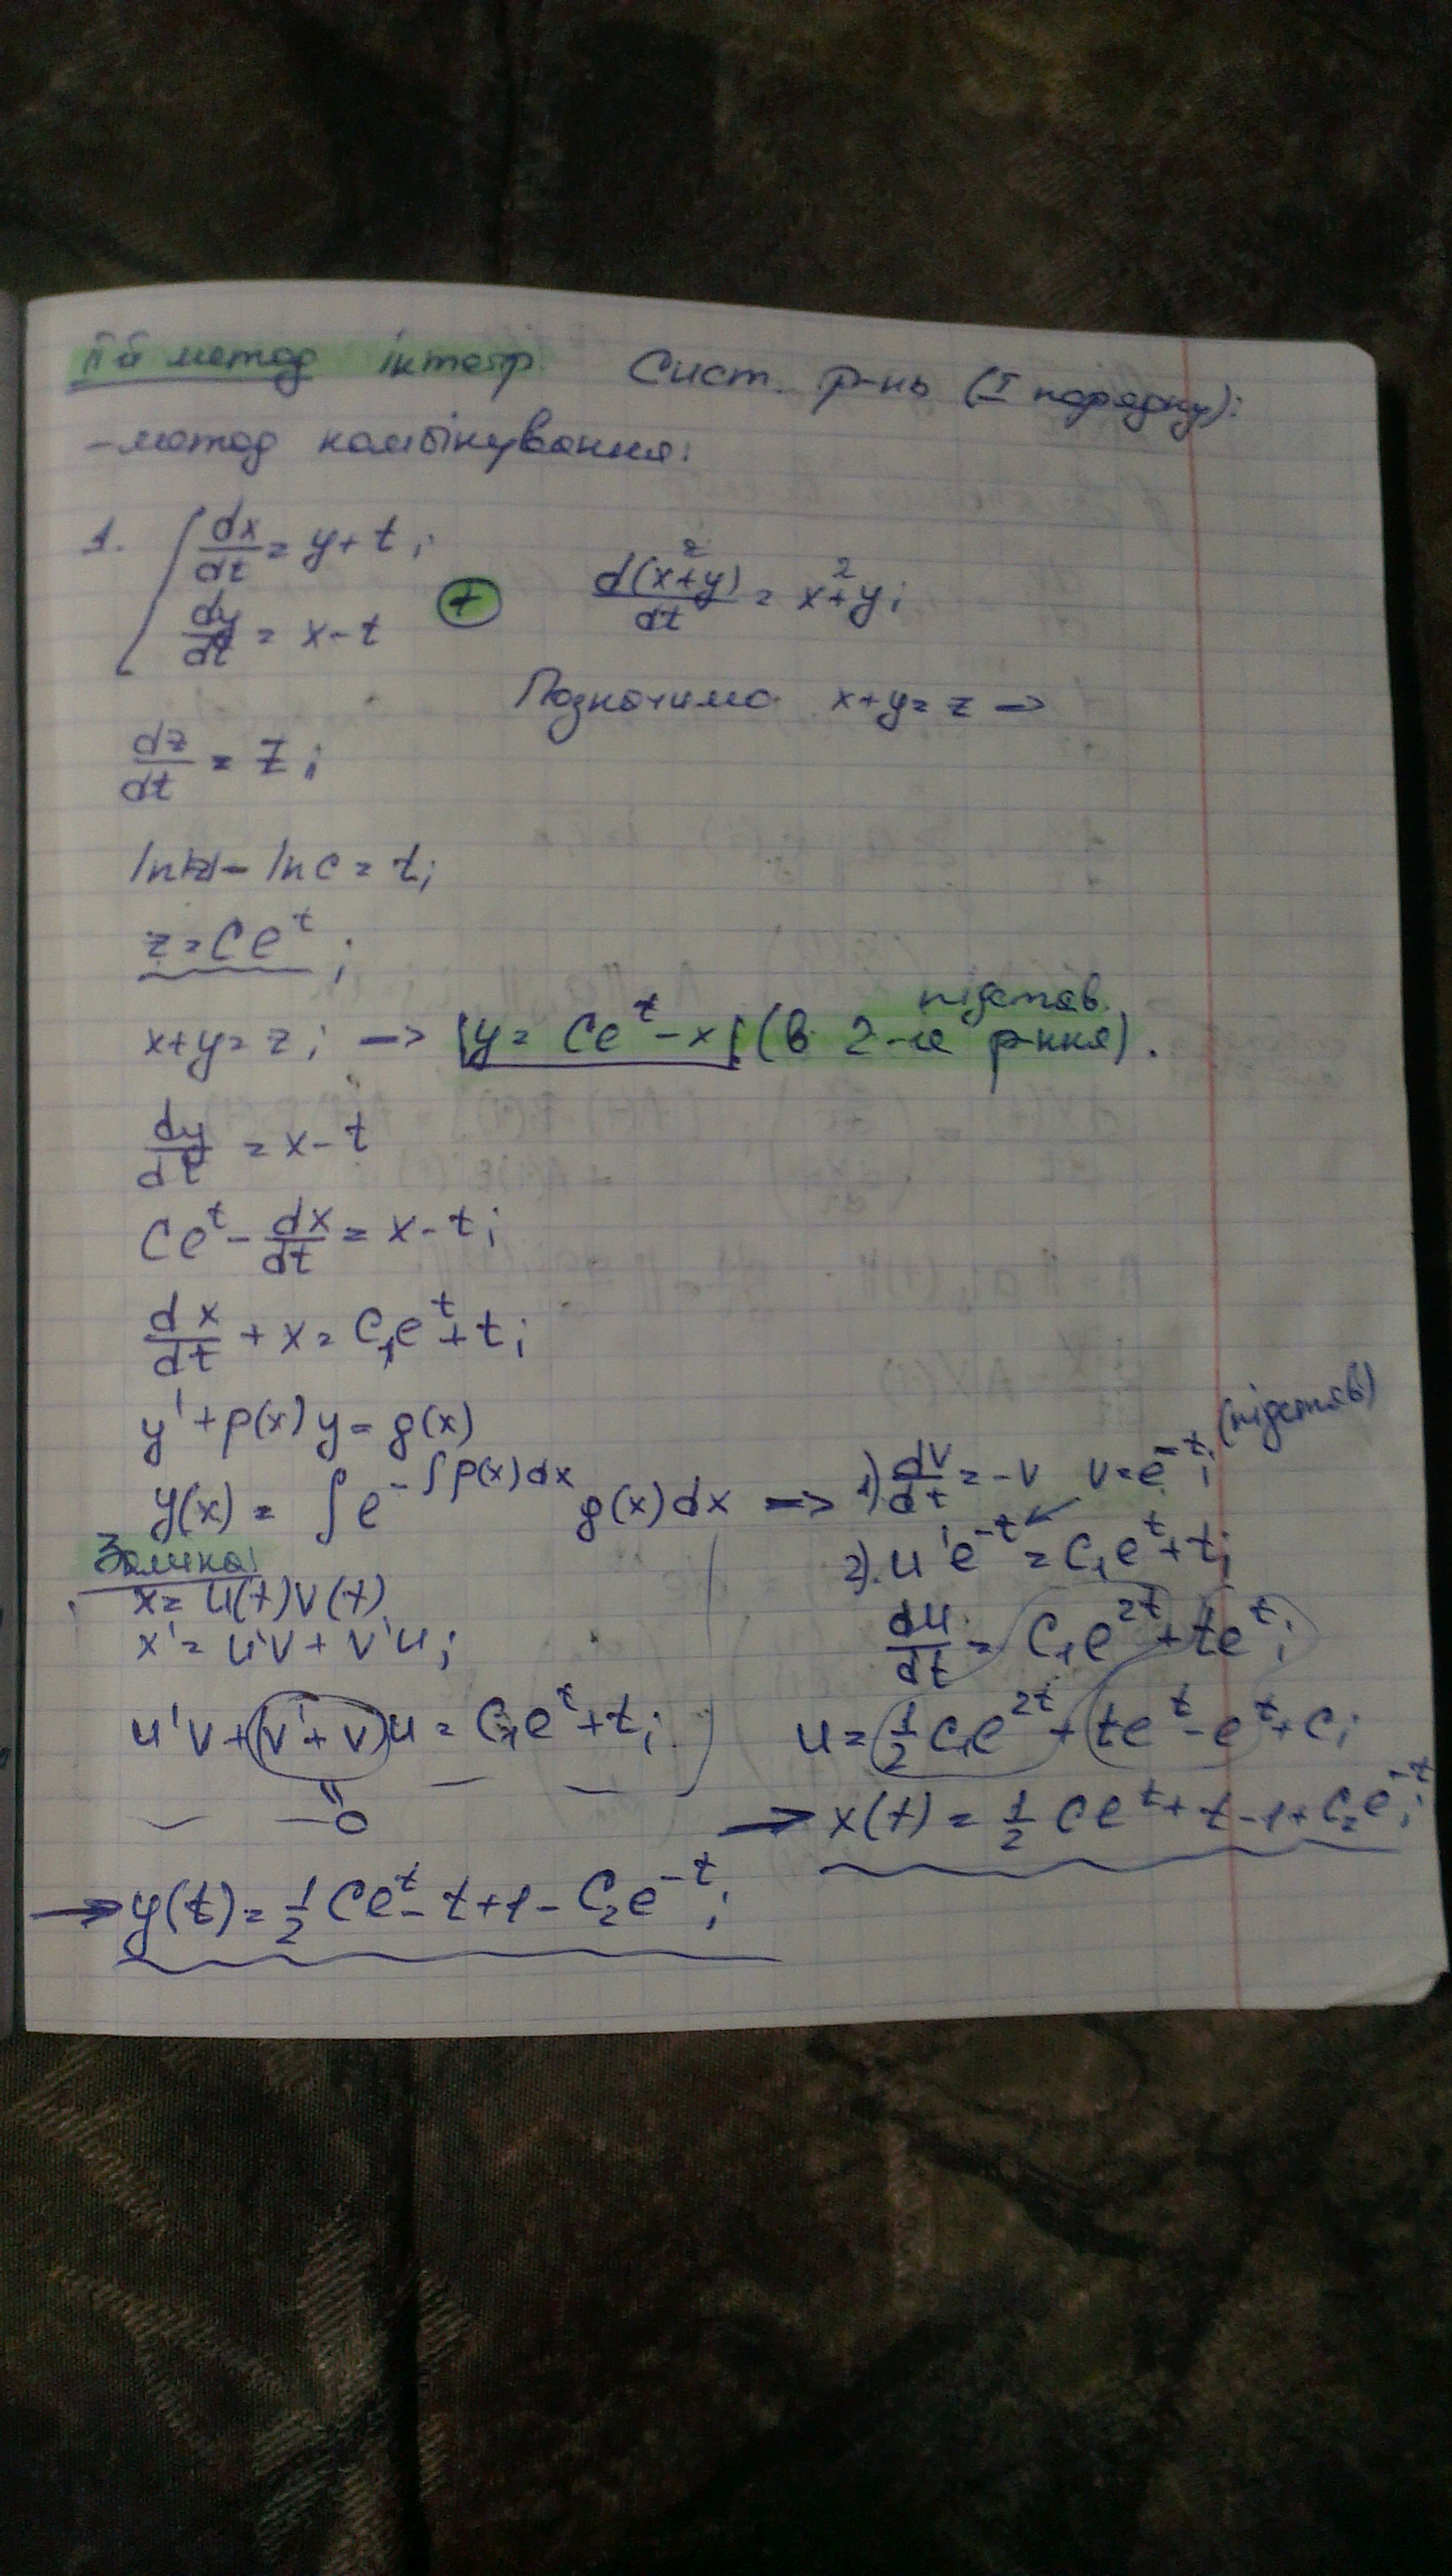 ІІй метод інтегр. Сист. р-нь (I порядку):
-метод комбінування:
1. { dx/dt = y + t;
dy/dt = x - t
(+) d(x+y)/dt = x+y;
z z
Позначимо x+y = z ->
dz/dt = z;
ln|z| - ln c = t;
z = Ce^t;
x+y = z; -> |y = Ce^t - x| (в 2-ге р-ння).
підстав.
dy/dt = x - t
Ce^t - dx/dt = x - t;
dx/dt + x = C₁e^t + t;
y' + p(x)y = g(x)
y(x) = ∫e^(-∫p(x)dx) g(x)dx ->
Заміна:
x = u(t)v(t)
x' = u'v + v'u;
u'v + (v' + v)u = C₁e^t + t;
=0
1) dv/dt = -v v = e^(-t); (підстав)
2). u'e^(-t) = C₁e^t + t;
du/dt = C₁e^(2t) + te^t;
u = 1/2 C₁e^(2t) + te^t - e^t + C;
-> x(t) = 1/2 Ce^t + t - 1 + C₂e^(-t);
-> y(t) = 1/2 Ce^t - t + 1 - C₂e^(-t);